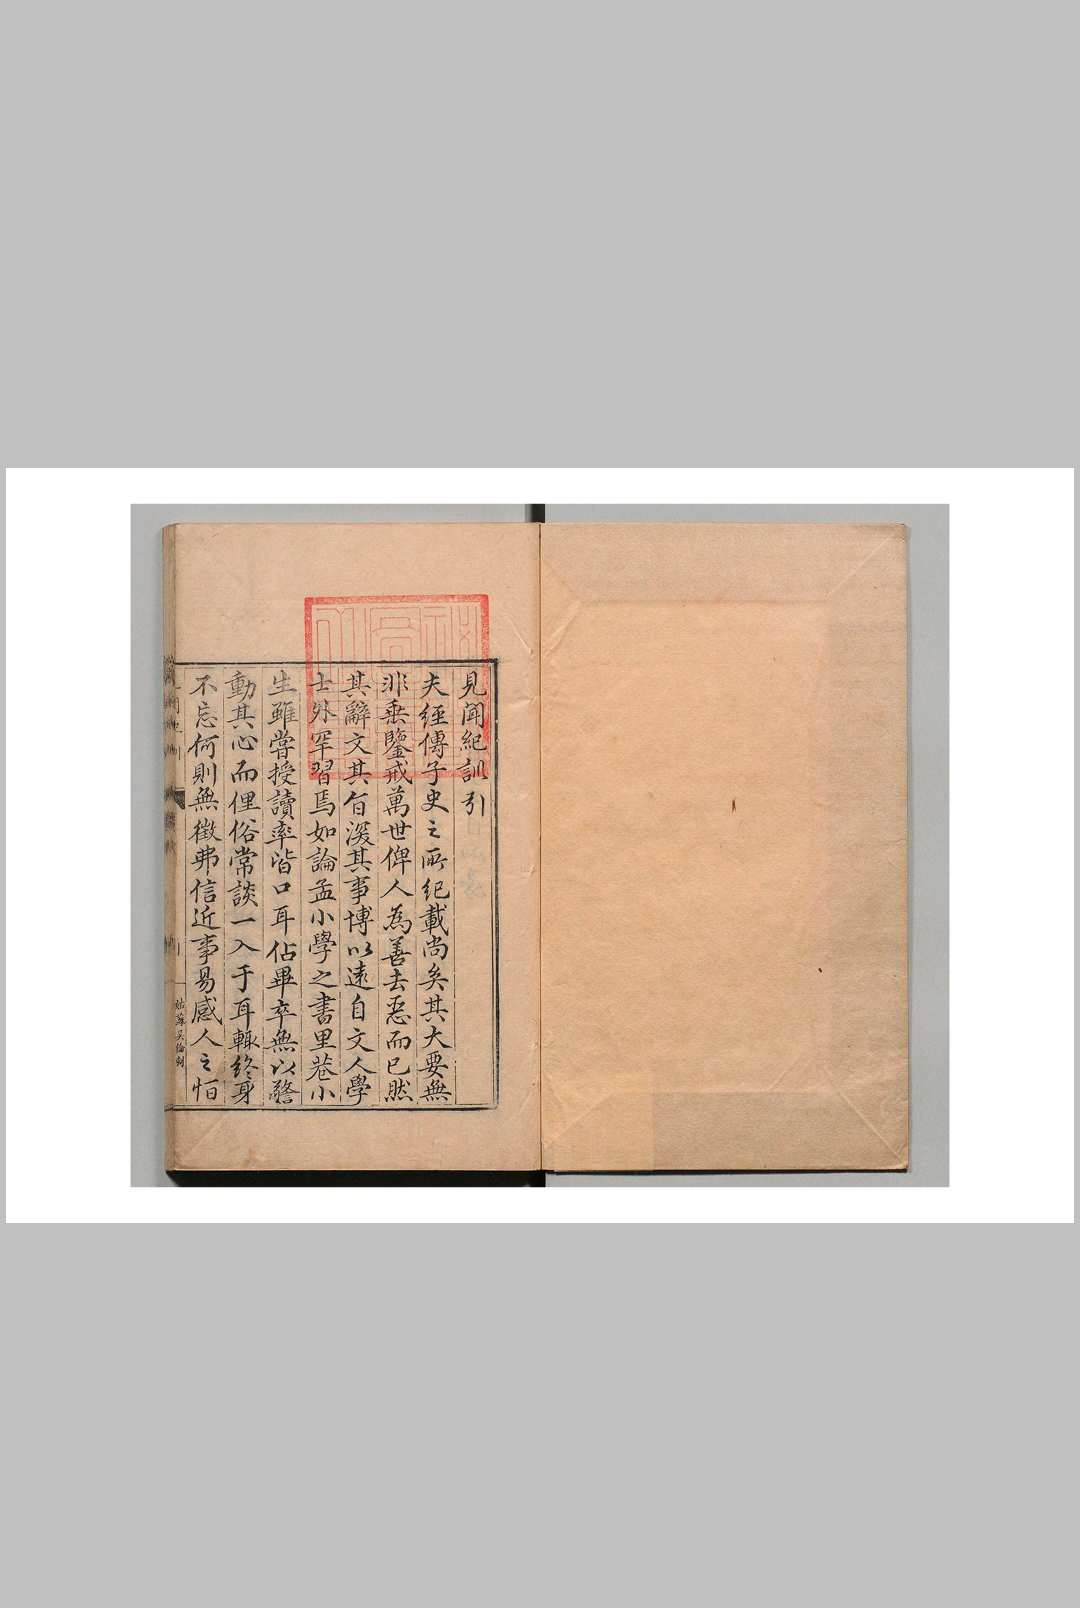 見聞紀訓引
夫經傳子史之所紀載尚矣其大要無
非垂鑒戒萬世俾人為善去惡而已然
其辭文其旨深其事博以遠自文人學
士外罕習焉如論孟小學之書里巷小
生雖嘗授讀率皆口耳佔畢卒無以警
動其心而俚俗常談一入于耳輙終身
不忘何則無徵弗信近事易感人之恒
姑蘇吳